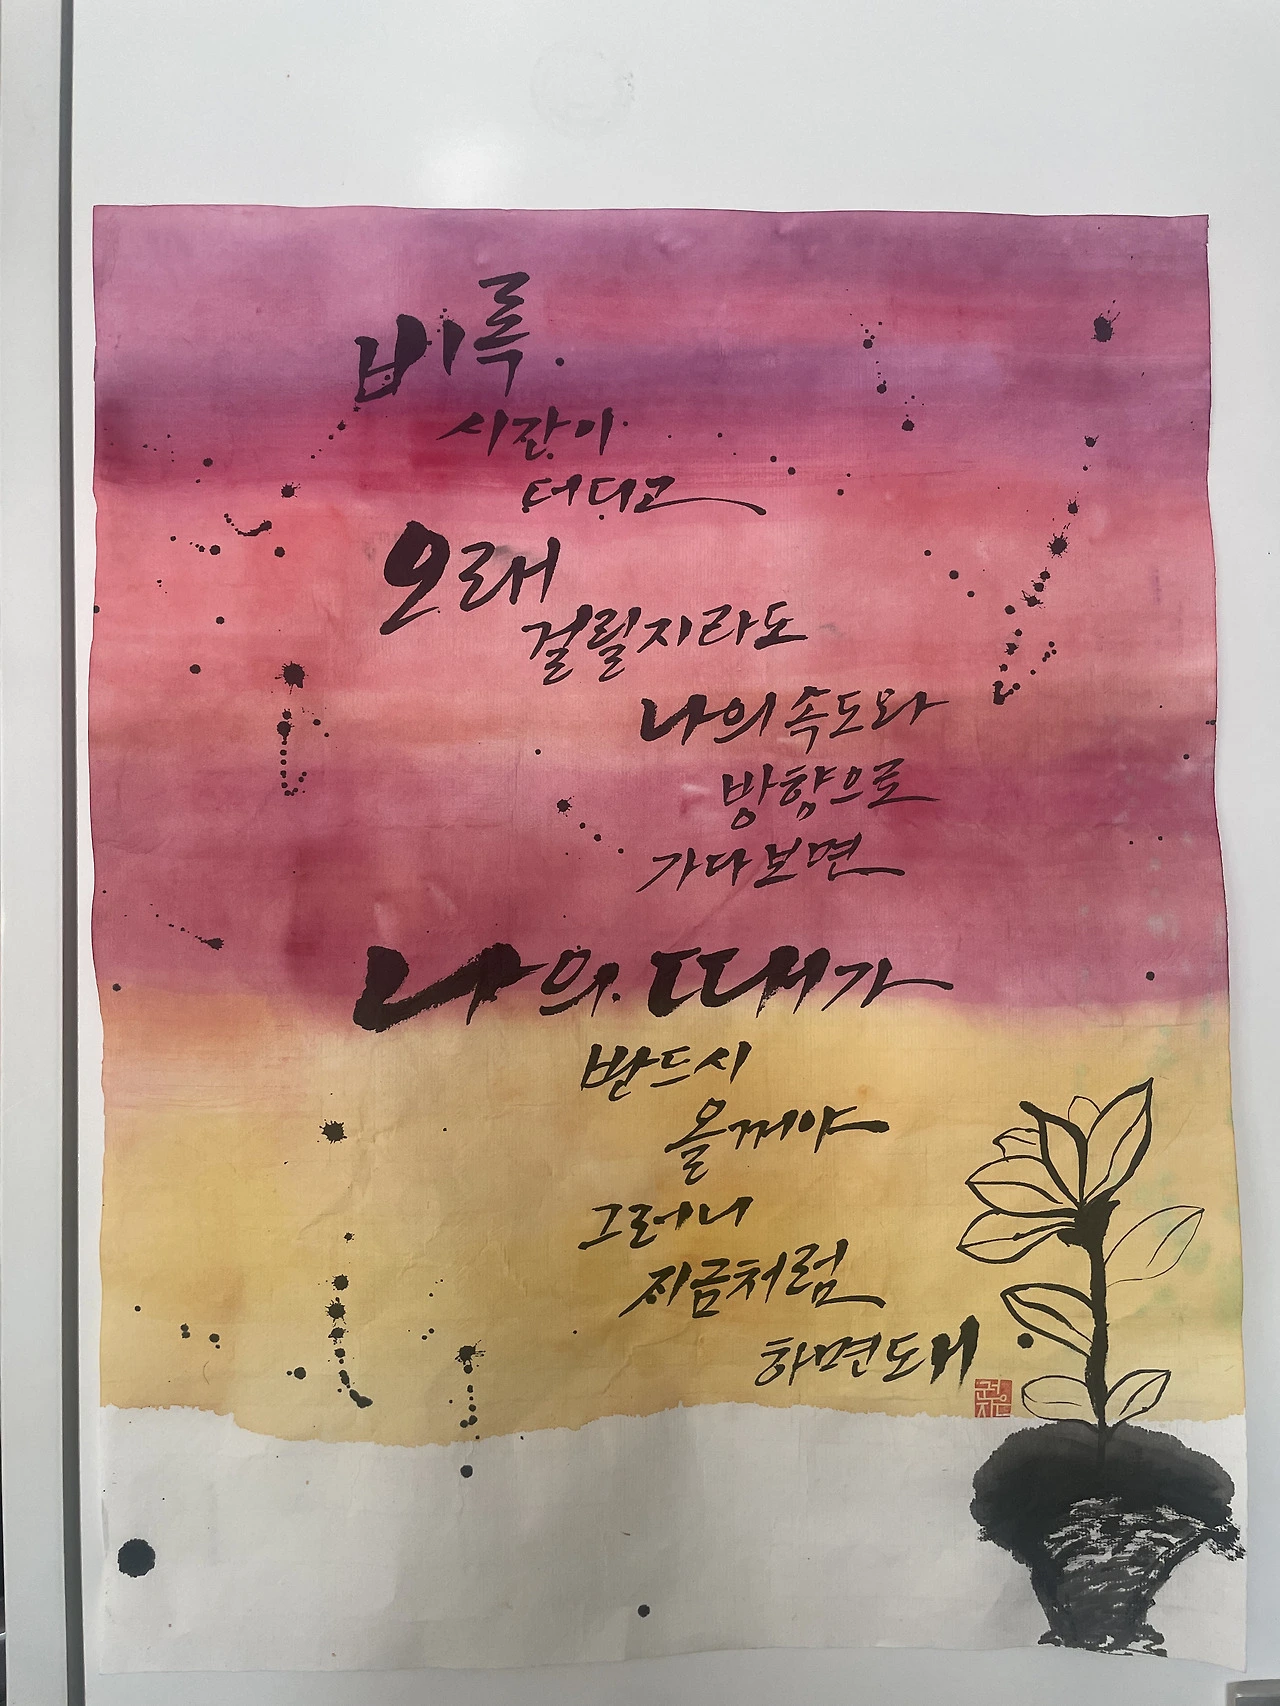 비록
시간이
더디고
오래
걸릴지라도
나의 속도와
방향으로
가다보면
나의 때가
반드시
올꺼야
그러니
지금처럼
하면도ㅐ